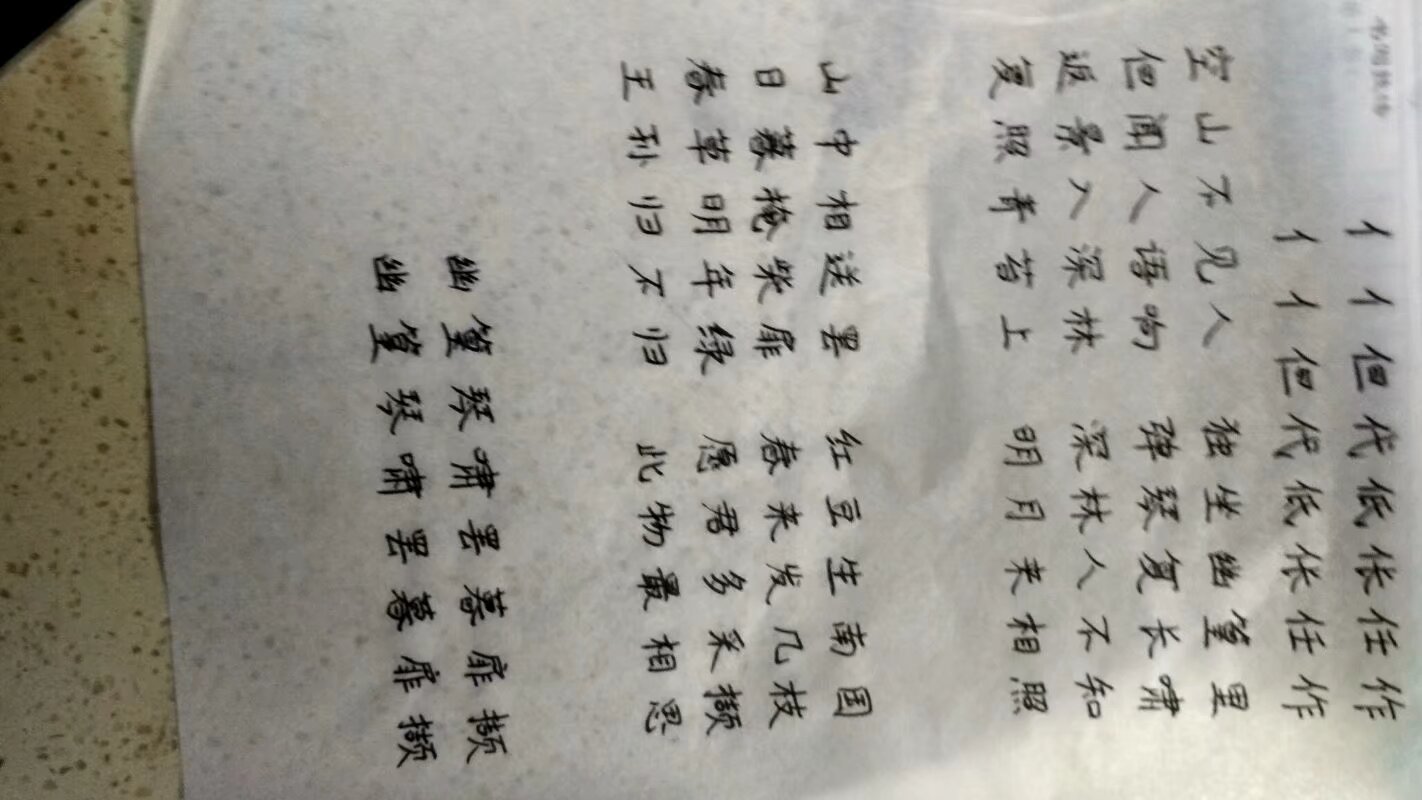 亻亻但代低伥任作
亻亻但代低伥任作
空山不见人 独坐幽篁里
但闻人语响 弹琴复长啸
返景入深林 深林人不知
复照青苔上 明月来相照
山中相送罢 红豆生南国
日暮掩柴扉 春来发几枝
春草明年绿 愿君多采撷
王孙归不归 此物最相思
幽篁琴啸罢暮扉撷
幽篁琴啸罢暮扉撷